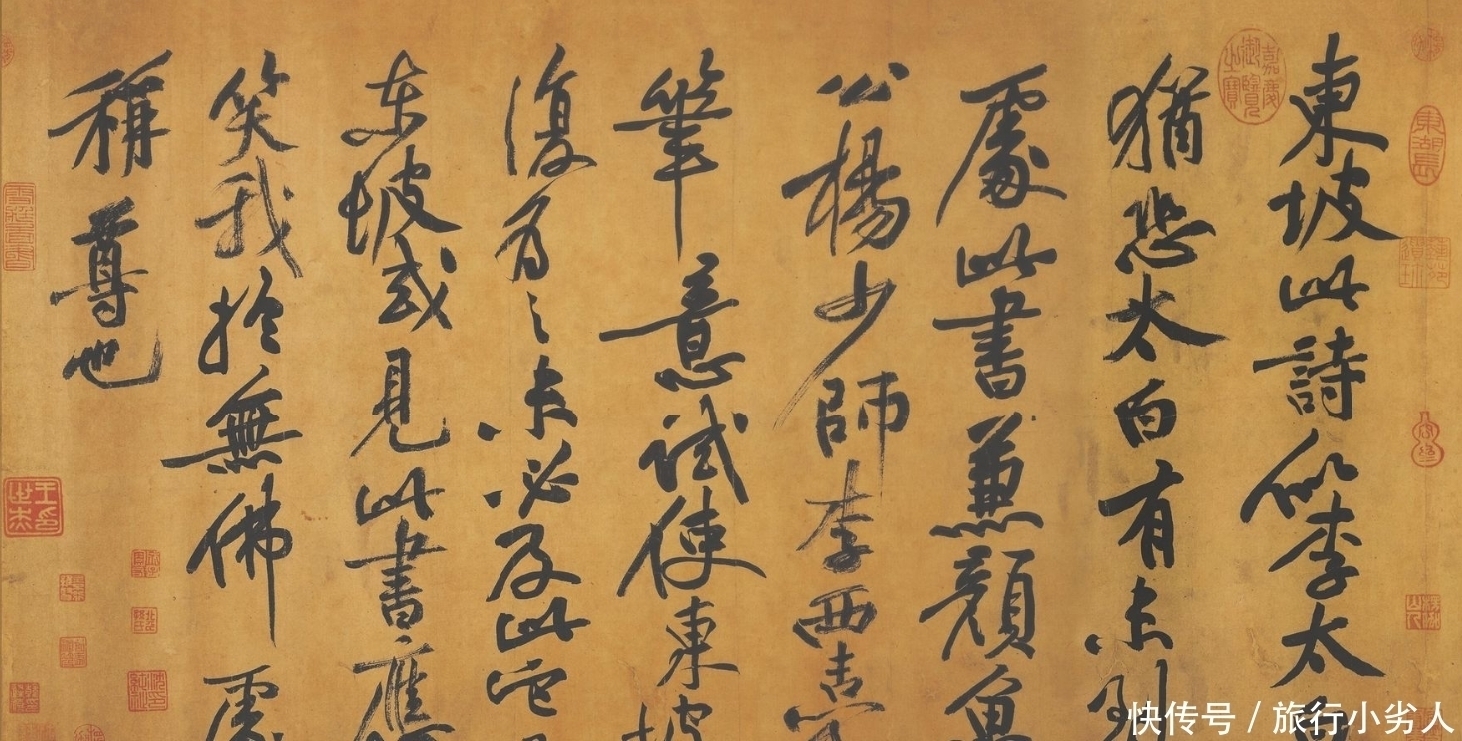 東坡此詩似李太白
猶恐太白有未到
處此書兼顏魯
公楊少師李西臺
筆意試使東坡
復為之未必及此它
東坡或見此書應
笑我於無佛處
稱尊也
嘉慶御覽之寶
東湖長
快传号 / 旅行小劣人